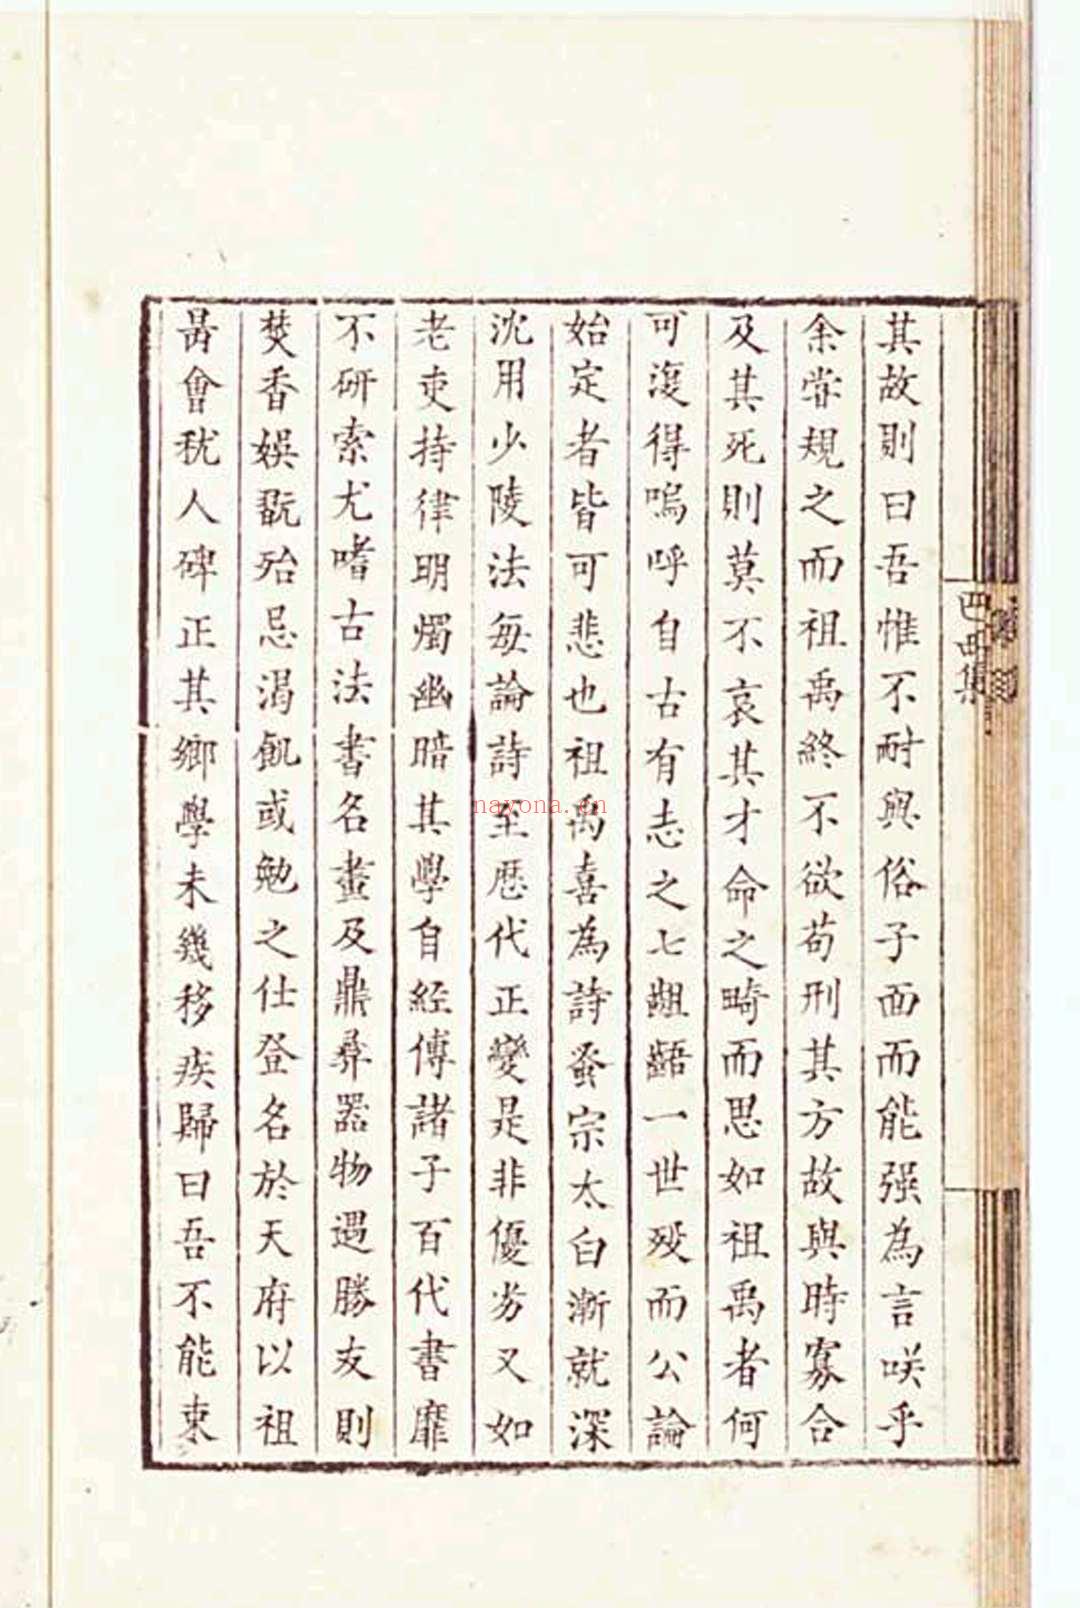 其故則曰吾惟不耐與俗子面而能强為言咲乎
余嘗規之而祖禹終不欲茍刑其方故與時寡合
及其死則莫不哀其才命之畸而思如祖禹者何
可復得嗚呼自古有志之士齟齬一世歿而公論
始定者皆可悲也祖禹喜為詩蚤宗太白漸就深
沈用少陵法每論詩至歴代正變是非優劣又如
老吏持律明燭幽暗其學自經傳諸子百代書靡
不研索尤嗜古法書名畫及鼎彝器物遇勝友則
焚香娛翫殆忌渴飢或勉之仕登名於天府以祖
禼會秋人碑正其鄉學未幾移疾歸曰吾不能束
巴西集
nayona.cn